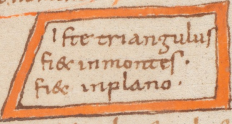 Iste triangulus
fide in montes.
fide in plano.